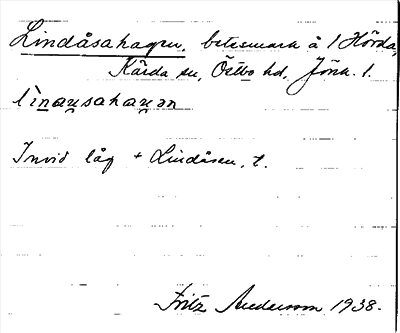 Lindåsahagen, betesmark å 1 Hörda,
Kärda sn, Östbo hd, Jönk. l.
Invid låg + Lindåsen, t.
Fritz Andersson 1938.